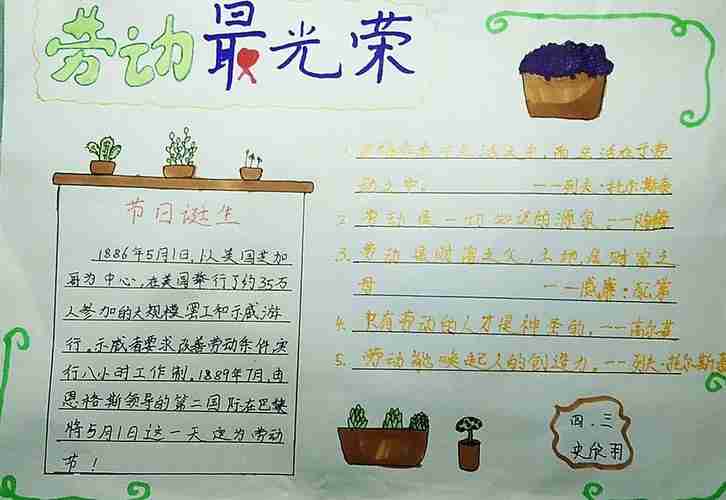 劳动最光荣
节日诞生
1886年5月1日,以美国芝加
哥为中心,在美国举行了约35万
人参加的大规模罢工和示威游
行,示威者要求改善劳动条件实
行八小时工作制。1889年7月,由
恩格斯领导的第二国际在巴黎
将5月1日这一天定为劳动
节!
1. 在于生活,而生活在于劳
动之中。 ——列夫·托尔斯泰
2. 劳动是一切知识的源泉。——陶铸
3. 劳动是财富之父,土地是财富之
母 ——威廉:配第
4. 只有劳动的人才是神圣的。——高尔基
5. 劳动能唤起人的创造力。——列夫·托尔斯泰
四.三
史欣羽